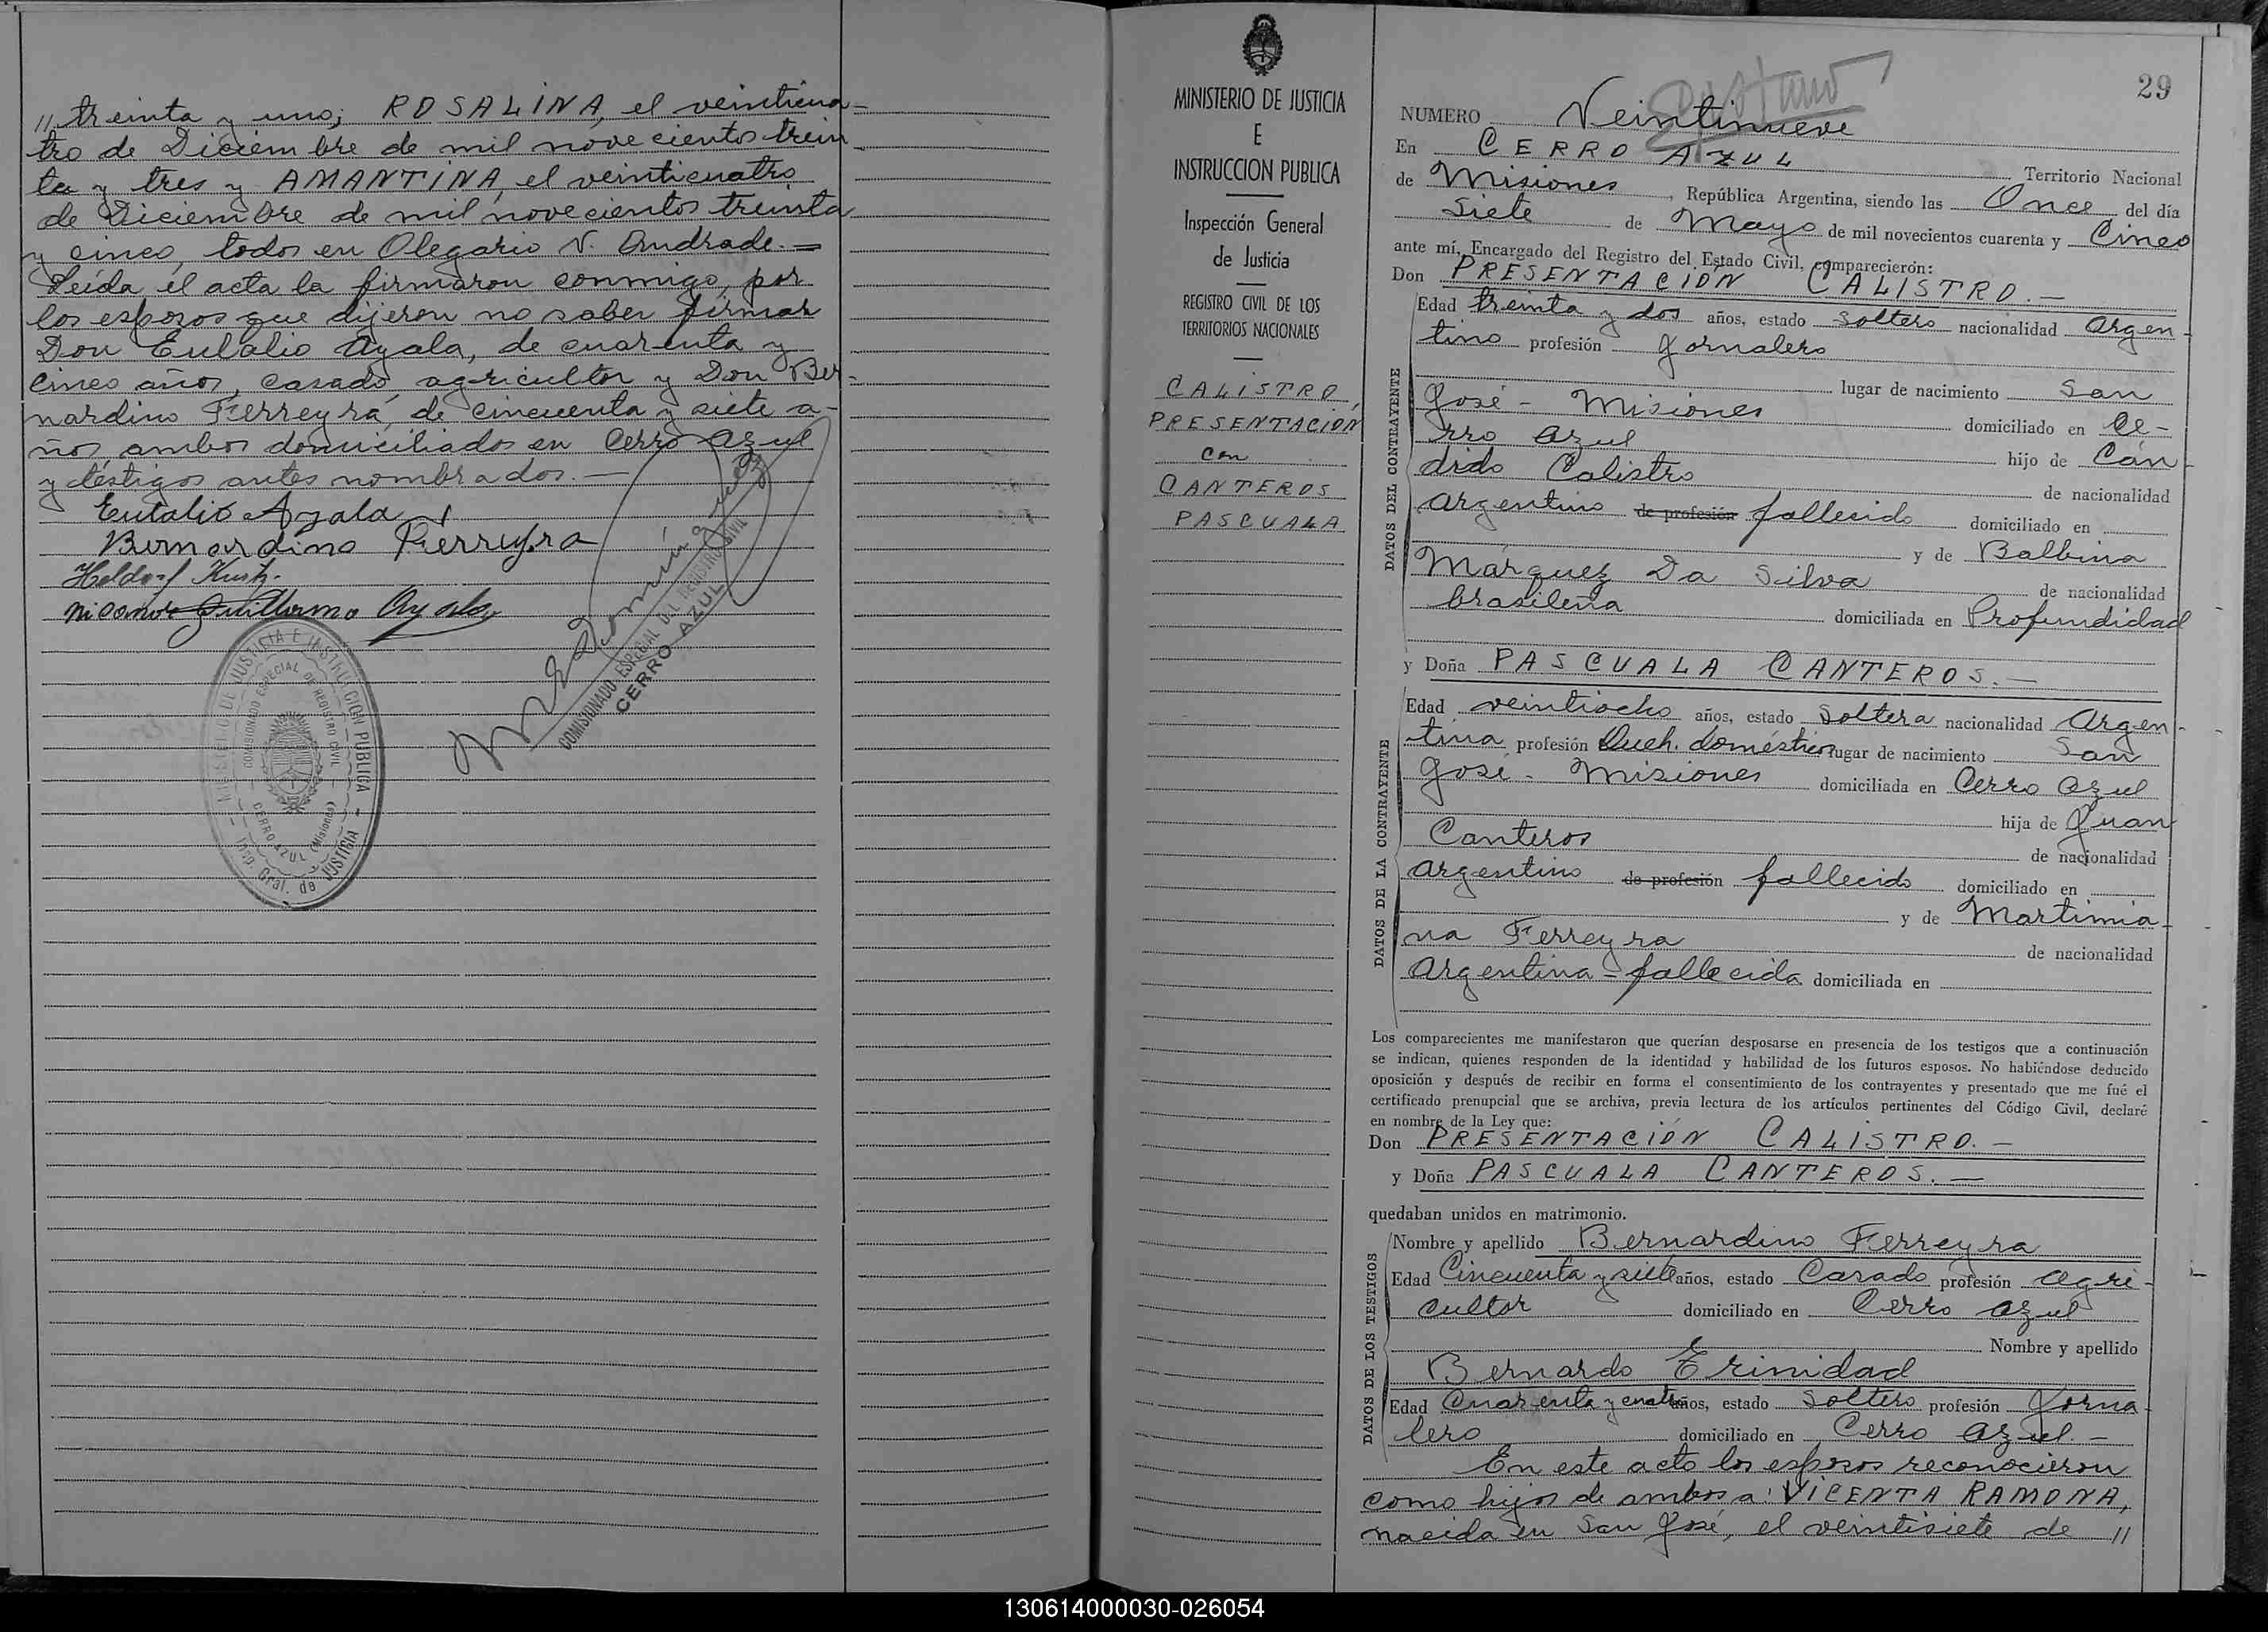 // treinta y uno; ROSALINA, el veinticua-
tro de Diciembre de mil novecientos trein
ta y tres y AMANTINA, el veinticuatro
de Diciembre de mil novecientos treinta
y cinco, todos en Olegario V. Andrade.=
Leída el acta la firmaron conmigo, por
los esposos que dijeron no saber firmar
Don Eulalio Ayala, de cuarenta y
cinco años, casado, agricultor y Don Ber-
nardino Ferreyra, de cincuenta y siete a-
ños, ambos domiciliados en Cerro Azul
y testigos antes nombrados.—
Eulalio Ayala
Bernardino Fierreyra
Heldorf Kurtz.
Nicanor Guillermo Ayala
COMISIONADO ESPECIAL DEL REGISTRO CIVIL
CERRO AZUL
MINISTERIO DE JUSTICIA E INSTRUCCION PUBLICA
COMISIONADO ESPECIAL DE REGISTRO CIVIL
CERRO AZUL (Misiones)
Insp. Gral. de JUSTICIA
MINISTERIO DE JUSTICIA
E
INSTRUCCION PUBLICA
Inspección General
de Justicia
REGISTRO CIVIL DE LOS
TERRITORIOS NACIONALES
CALISTRO,
PRESENTACIÓN
con
CANTEROS
PASCUALA
29
NUMERO Veintinueve
En CERRO AZUL Territorio Nacional
de Misiones, República Argentina, siendo las Once del día
Siete de Mayo de mil novecientos cuarenta y Cinco
ante mí, Encargado del Registro del Estado Civil, comparecieron:
Don PRESENTACIÓN CALISTRO.—
DATOS DEL CONTRAYENTE
Edad treinta y dos años, estado soltero nacionalidad Argen-
tino profesión Jornalero
lugar de nacimiento San
José - Misiones domiciliado en Ce-
rro Azul hijo de Cán-
dido Calistro de nacionalidad
argentino de profesión fallecido domiciliado en
y de Balbina
Márquez Da Silva de nacionalidad
brasileña domiciliada en Profundidad
y Doña PASCUALA CANTEROS.—
DATOS DE LA CONTRAYENTE
Edad veintiocho años, estado Soltera nacionalidad Argen-
tina profesión Queh. domésticos lugar de nacimiento San
José - Misiones domiciliada en Cerro Azul
hija de Juan
Canteros de nacionalidad
argentino de profesión fallecido domiciliado en
y de Martimia-
na Ferreyra de nacionalidad
Argentina - fallecida domiciliada en
Los comparecientes me manifestaron que querían desposarse en presencia de los testigos que a continuación
se indican, quienes responden de la identidad y habilidad de los futuros esposos. No habiéndose deducido
oposición y después de recibir en forma el consentimiento de los contrayentes y presentado que me fué el
certificado prenupcial que se archiva, previa lectura de los artículos pertinentes del Código Civil, declaré
en nombre de la Ley que:
Don PRESENTACIÓN CALISTRO.—
y Doña PASCUALA CANTEROS.—
quedaban unidos en matrimonio.
DATOS DE LOS TESTIGOS
Nombre y apellido Bernardino Ferreyra
Edad Cincuenta y siete años, estado Casado profesión agri-
cultor domiciliado en Cerro Azul
Nombre y apellido
Bernardo Trinidad
Edad Cuarenta y cuatro años, estado Soltero profesión Jorna-
lero domiciliado en Cerro Azul.—
En este acto los esposos reconocieron
como hijos de ambos a: VICENTA RAMONA,
nacida en San José, el veintisiete de //
130614000030-026054